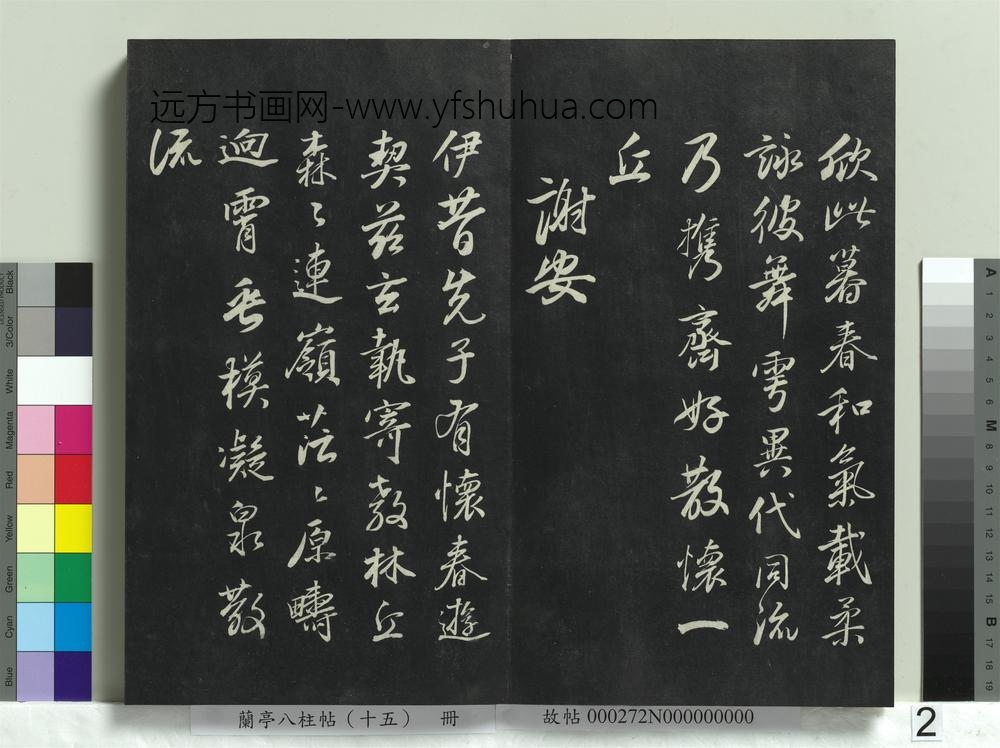 远方书画网-www.yfshuhua.com
欣此暮春和氣載柔
詠彼舞雩異代同流
乃携齊好散懷一
丘
謝安
伊昔先子有懷春遊
契茲言執寄敖林丘
森〻連嶺茫〻原疇
逈霄垂模凝泉散
流
蘭亭八柱帖（十五） 冊
故帖 000272N000000000
2
Black
3/Color
White
Magenta
Red
Yellow
Green
Cyan
Blue
A
1
2
3
4
5
6
M
8
9
10
11
12
13
14
15
B
17
18
19